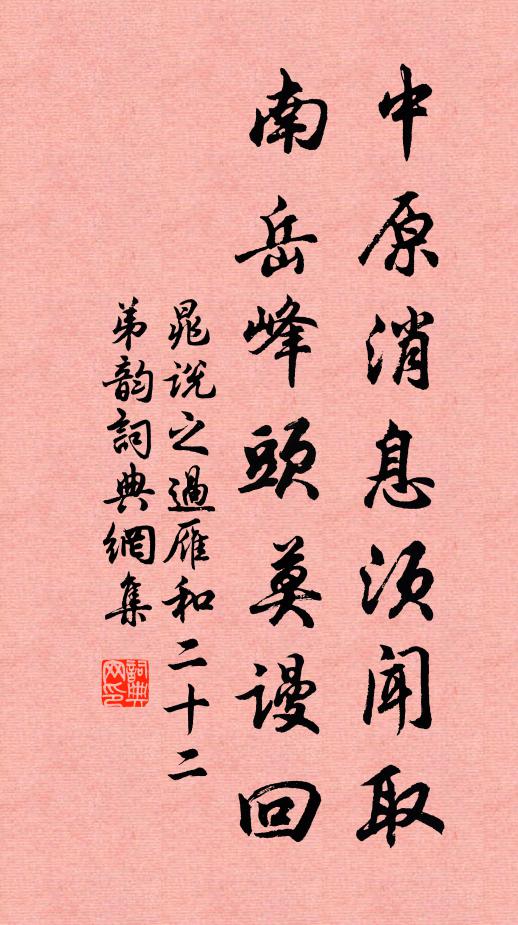 中原消息須聞取
南岳峰頭莫謾回
晁說之過雁和二十二
弟韵詞典網集
詞典网印